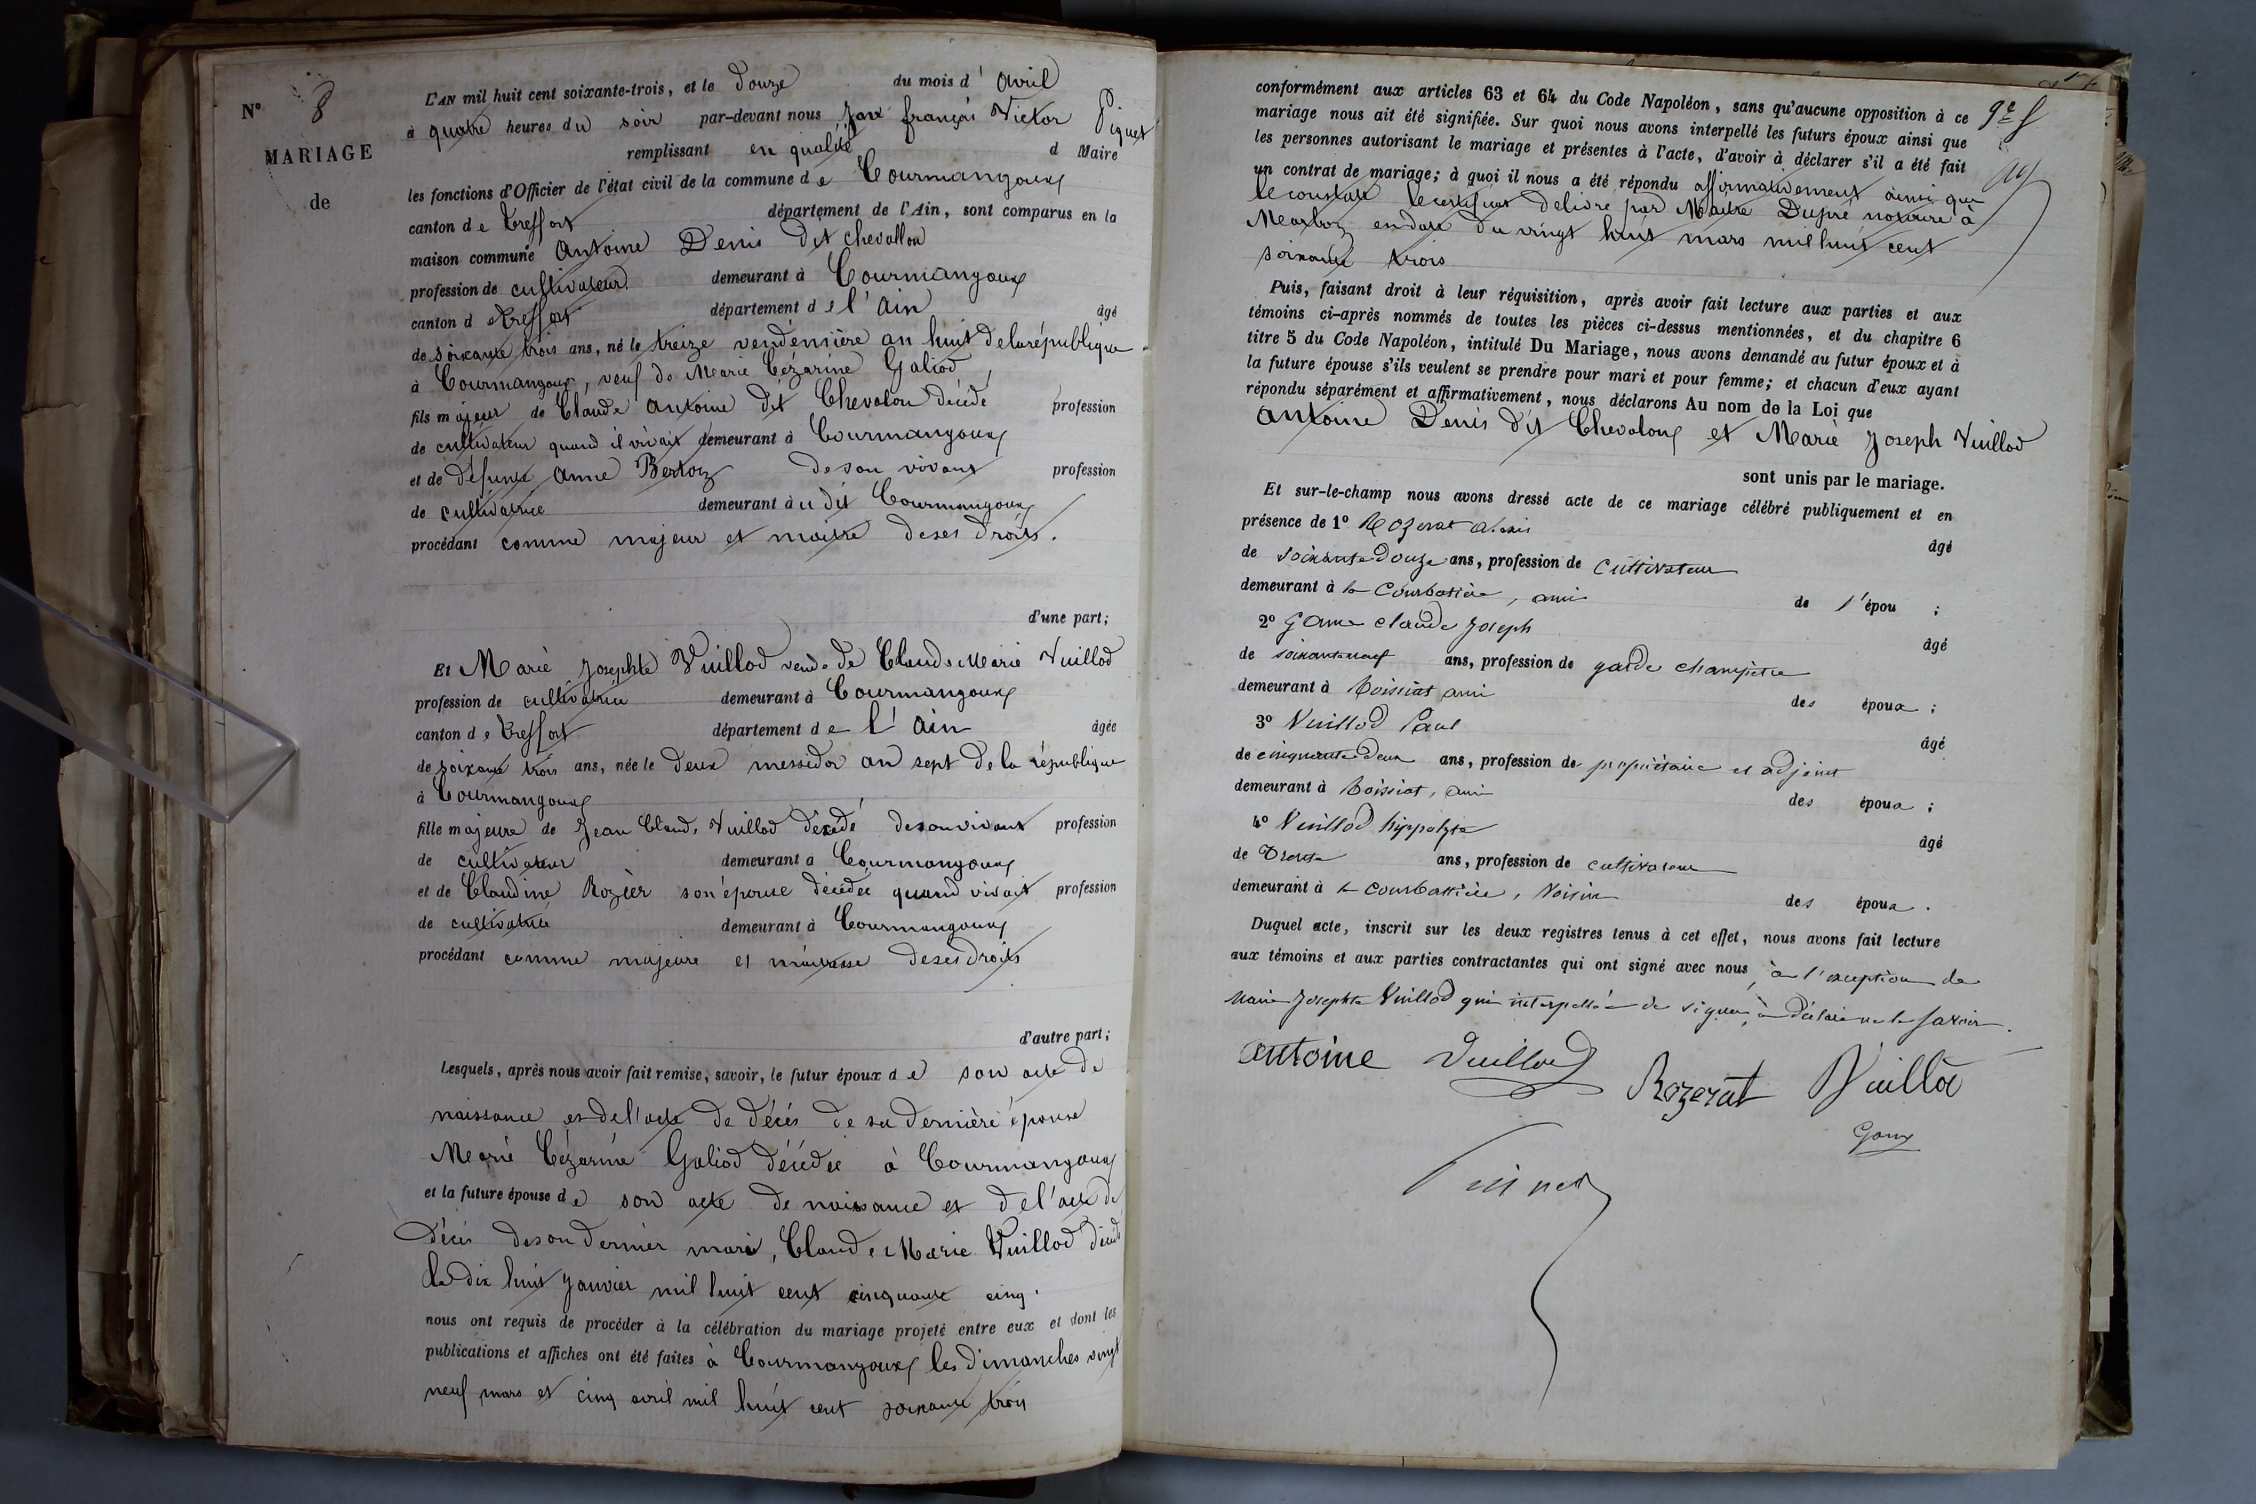 N° 8
MARIAGE
de
L'AN mil huit cent soixante-trois, et le douze du mois d' avril
à quatre heures du soir par-devant nous françois Victor Piquet
remplissant en qualité d Maire
les fonctions d'Officier de l'état civil de la commune de Courmangoux
canton de Treffort département de l'Ain, sont comparus en la
maison commune Antoine Denis dit chevallon
profession de cultivateur demeurant à Courmangoux
canton de Treffort département de l'ain âgé
de soixante trois ans, né le treize vendémière an huit de la république
à Courmangoux, veuf de Marie Cézarine Galiod,
fils majeur de Claude antoine dit Chevalon décédé profession
de cultivateur quand il vivait demeurant à Courmangoux
et de défunte Anne Bertoz de son vivant profession
de cultivatrice demeurant àu dit Courmangoux
procédant comme majeur et maitre de ses droits.
d'une part;
Et Marie Josephte Vuillod veuve de Claude Marie Vuillod
profession de cultivatrice demeurant à Courmangoux
canton de Treffort département de l'ain âgée
de soixante trois ans, née le deux messidor an sept de la république
à Courmangoux
fille majeure de Jean Claude Vuillod décédé de son vivant profession
de cultivateur demeurant à Courmangoux
et de Claudine Rozier son épouse décédée quand vivait profession
de cultivatrice demeurant à Courmangoux
procédant comme majeure et maitresse de ses droits
d'autre part;
Lesquels, après nous avoir fait remise, savoir, le futur époux de son acte de
naissance et de l'acte de décès de sa dernière épouse
Marie Cézarine Galiod décédée à Courmangoux
et la future épouse de son acte de naissance et de l'acte de
décès de son dernier mari, Claude Marie Vuillod décédé
le dix huit janvier mil huit cent cinquante cinq.
nous ont requis de procéder à la célébration du mariage projeté entre eux et dont les
publications et affiches ont été faites à Courmangoux les dimanches vingt
neuf mars et cinq avril mil huit cent soixante trois
conformément aux articles 63 et 64 du Code Napoléon, sans qu'aucune opposition à ce
mariage nous ait été signifiée. Sur quoi nous avons interpellé les futurs époux ainsi que
les personnes autorisant le mariage et présentes à l'acte, d'avoir à déclarer s'il a été fait
un contrat de mariage; à quoi il nous a été répondu affirmativement ainsi que
le constate le certificat delivré par Maitre Dupré notaire à
Mearboz en date du vingt huit mars mil huit cent
soixante trois
Puis, faisant droit à leur réquisition, après avoir fait lecture aux parties et aux
témoins ci-après nommés de toutes les pièces ci-dessus mentionnées, et du chapitre 6
titre 5 du Code Napoléon, intitulé Du Mariage, nous avons demandé au futur époux et à
la future épouse s'ils veulent se prendre pour mari et pour femme; et chacun d'eux ayant
répondu séparément et affirmativement, nous déclarons Au nom de la Loi que
antoine Denis dit Chevalon et Marie Joseph Vuillod
sont unis par le mariage.
Et sur-le-champ nous avons dressé acte de ce mariage célébré publiquement et en
présence de 1° Rozerat alexis âgé
de soixante douze ans, profession de cultivateur
demeurant à la Courbatière, ami de l'épou ;
2° Game claude Joseph âgé
de soixante neuf ans, profession de garde champêtre
demeurant à Roissiat ami des époux ;
3° Vuillod Paul âgé
de cinquante deux ans, profession de propriétaire et adjoint
demeurant à Roissiat, ami des époux ;
4° Vuillod hippolyte âgé
de trente ans, profession de cultivateur
demeurant à la courbattière, voisin des époux.
Duquel acte, inscrit sur les deux registres tenus à cet effet, nous avons fait lecture
aux témoins et aux parties contractantes qui ont signé avec nous, à l'exception de
Marie Josephte Vuillod qui interpellée de signer, a déclaré ne le savoir.
antoine Vuillod Rozerat Vuillod
Piquet